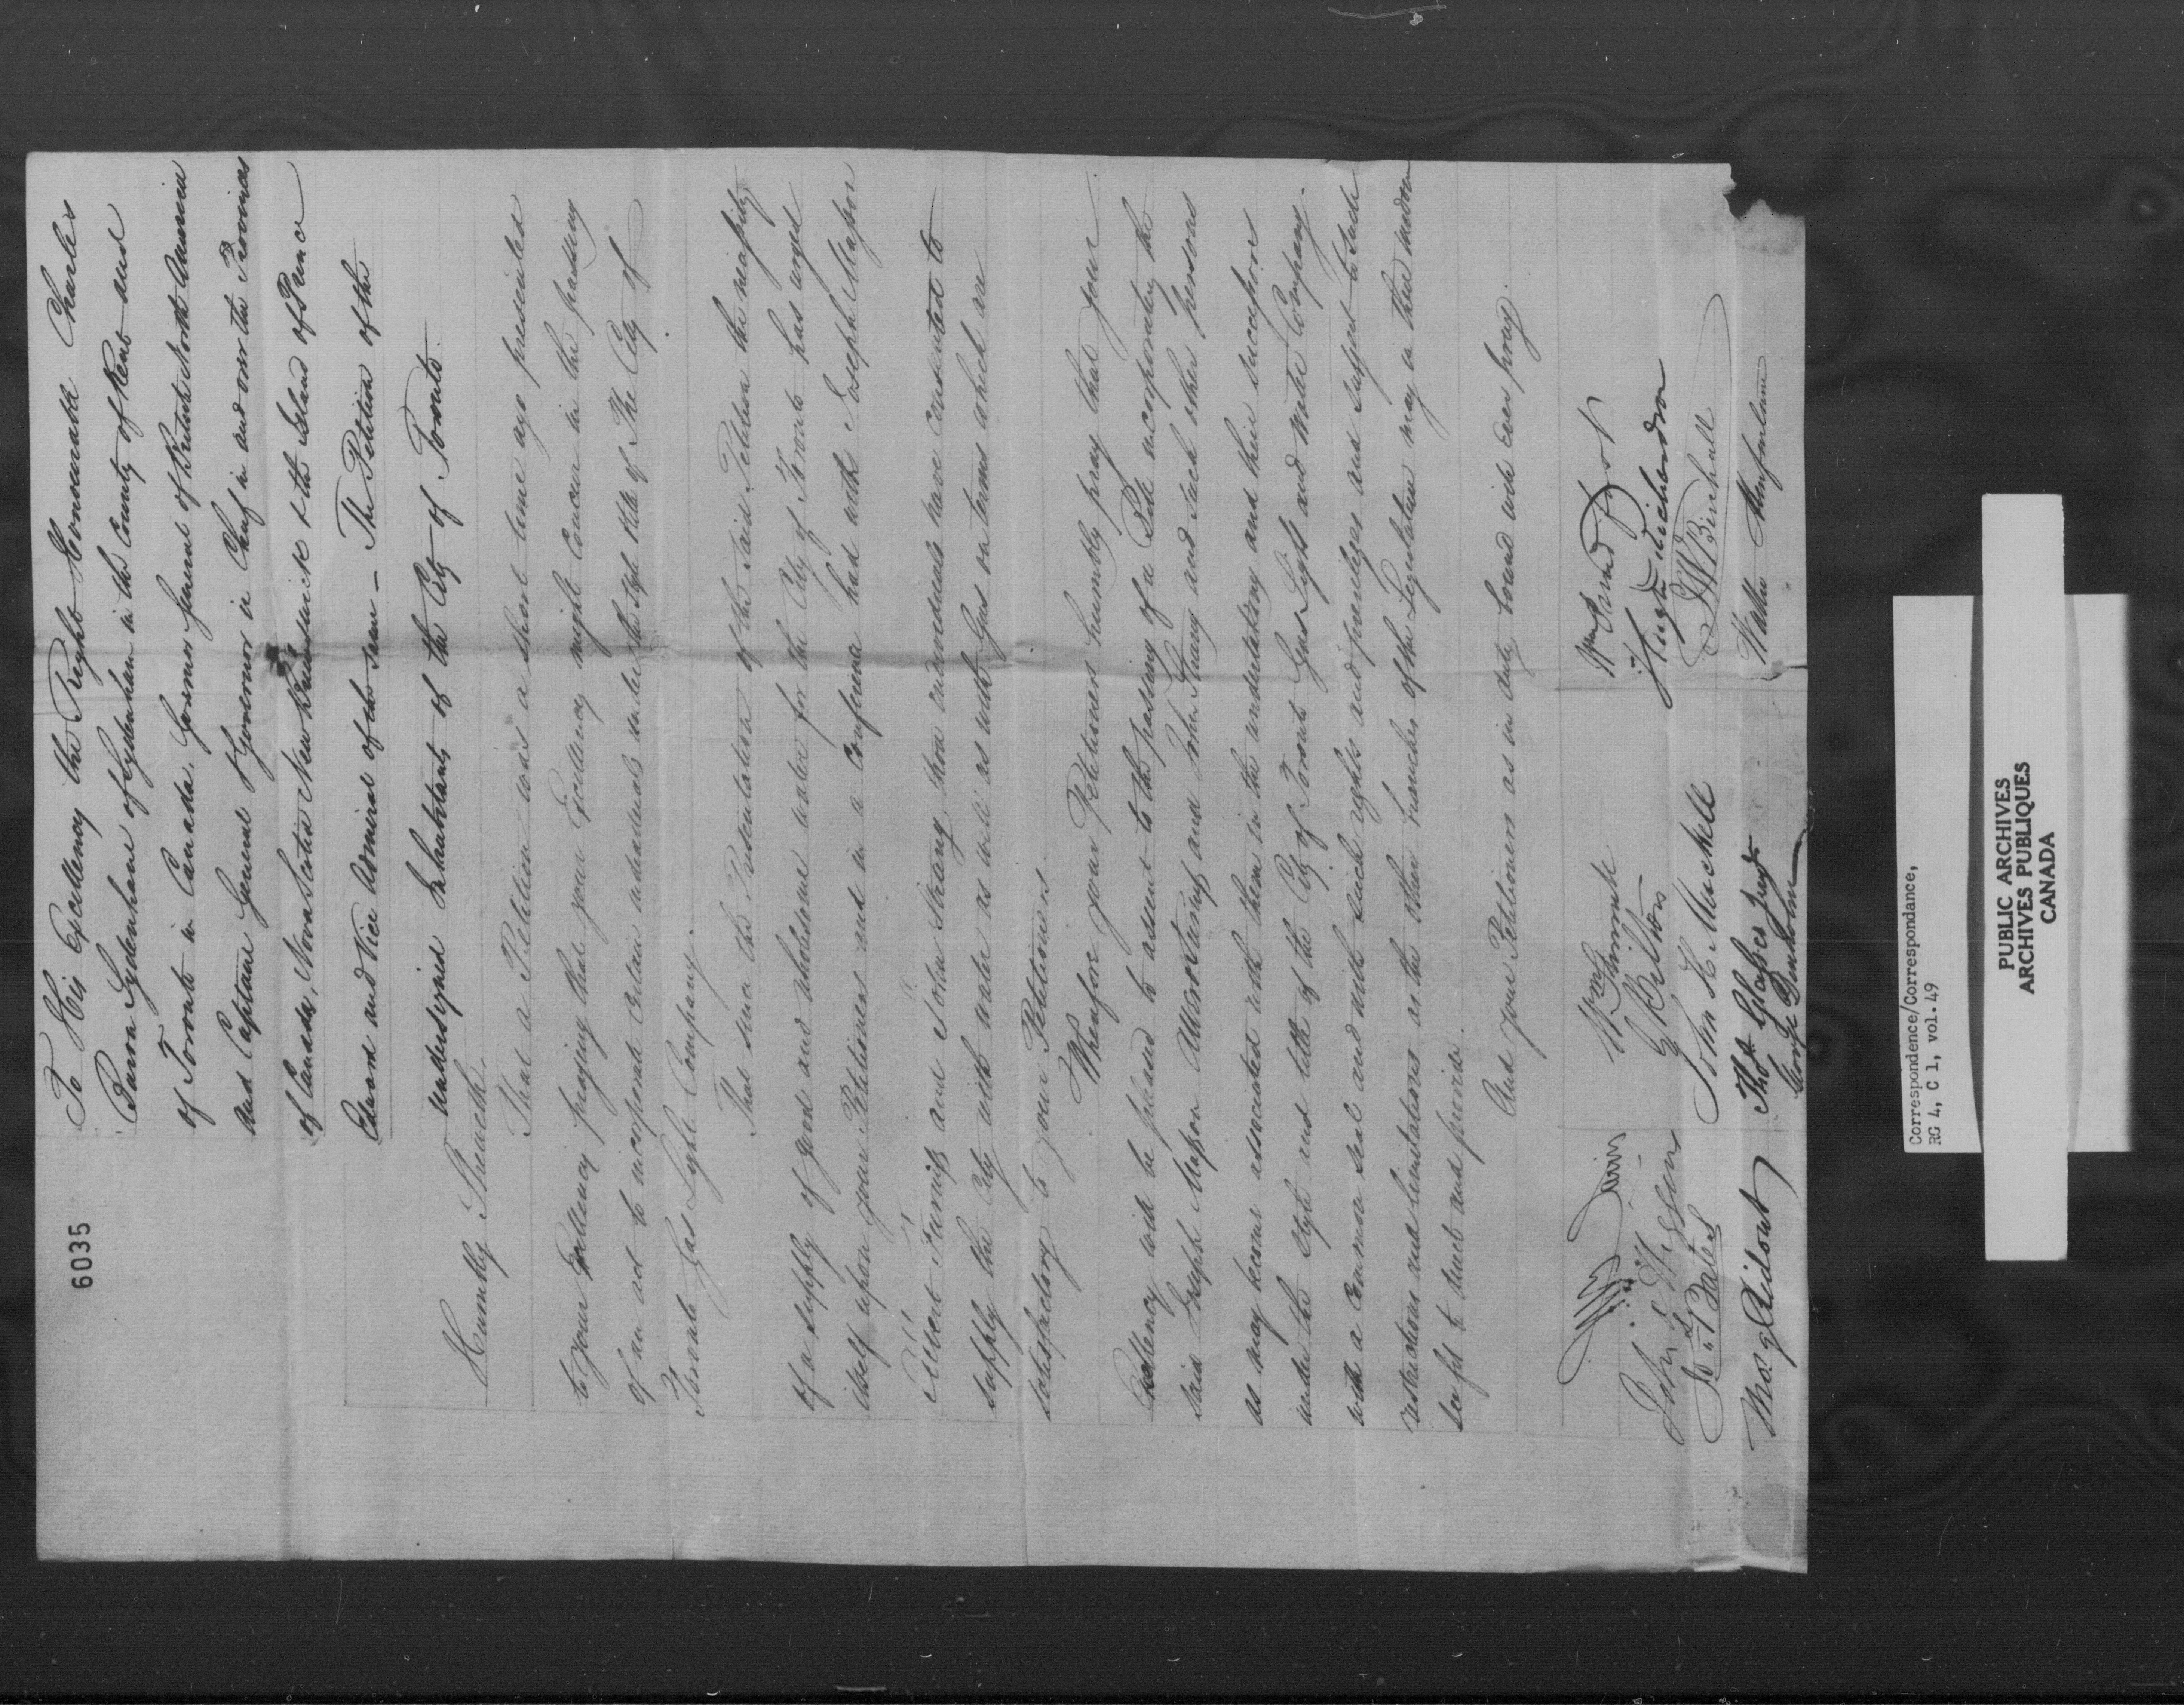 6035
To His Excellency the Right Honourable Charles
Baron Sydenham of Sydenham in the County of Kent and
of Toronto in Canada, Governor General of British North America
and Captain General & Governor in Chief in and over the Provinces
of Canada, Nova Scotia New Brunswick & the Island of Prince
Edward and Vice Admiral of the same — The Petition of the
undersigned Inhabitants of the City of Toronto.
Humbly Sheweth.
That a Petition was a short time ago presented
to your Excellency praying that your Excellency might concur in the passing
of an act to incorporate certain individuals under the style & title of The City of
Toronto Gas Light Company.
That since the Presentation of the said Petition the necessity
of a supply of good and wholesome water for the City of Toronto has urged
itself upon your Petitioners and in a conference had with Joseph Masson
Albert Furniss and John Strang, these individuals have consented to
supply the City with water as well as with Gas on terms which are
satisfactory to your Petitioners.
Wherefore your Petitioners humbly pray that your
Excellency will be pleased to assent to the passing of a Bill incorporating the
said Joseph Masson Albert Furniss and John Strang and such other persons
as may become associated with them in the undertaking and their successors
under the style and title of the City of Toronto Gas Light and Water Company.
with a Common Seal and with such rights and privileges and subject to such
restrictions and limitations as the other branches of the Legislature may in their wisdom
see fit to enact and provide.
And your Petitioners as in duty bound will ever pray.
Wm Proudfoot
Hugh Richardson
J W Birchall
Walter
John
Bates
Thos G Ridout
John K Mackell
Thos
George Denholm
Correspondence/Correspondance,
RG 4, C 1, vol. 49
PUBLIC ARCHIVES
ARCHIVES PUBLIQUES
CANADA